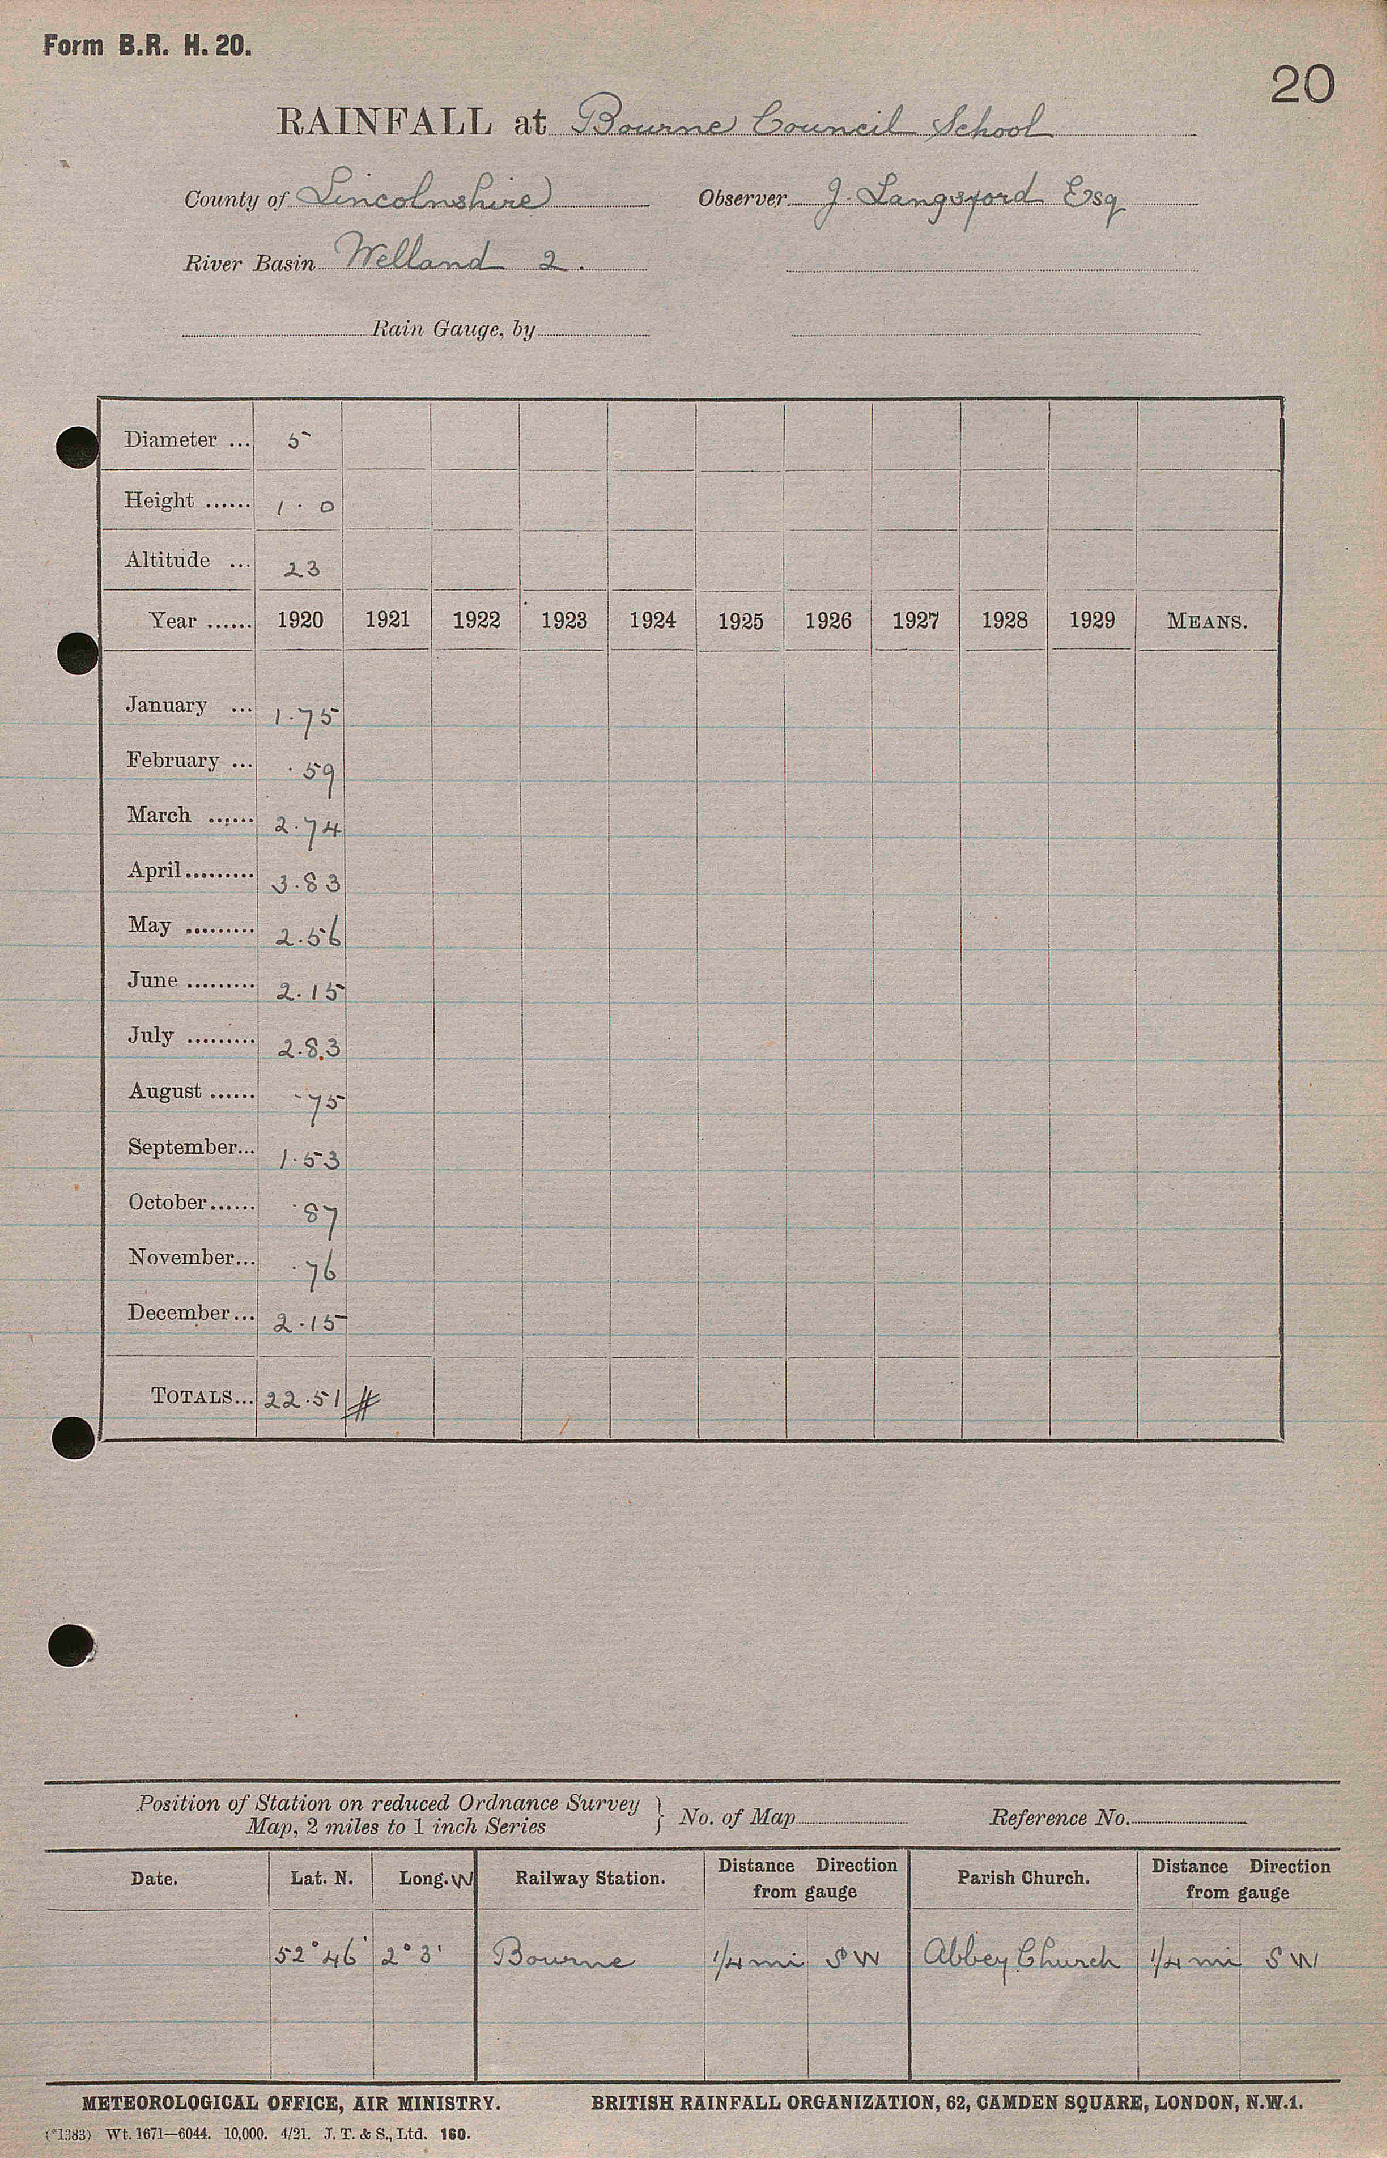 Form B.R. H. 20.
20
RAINFALL at Bourne Council School
County of Lincolnshire Observer J. Langsford Esq
River Basin Welland 2.
Rain Gauge, by
Diameter ... 5
Height ...... 1 . 0
Altitude ... 23
Year ...... 1920 1921 1922 1923 1924 1925 1926 1927 1928 1929 MEANS.
January ... 1.75
February ... .59
March ...... 2.74
April ......... 3.83
May ......... 2.56
June ......... 2.15
July ......... 2.83
August ...... .75
September... 1.53
October ...... .87
November... .76
December ... 2.15
TOTALS... 22.51 #
Position of Station on reduced Ordnance Survey
Map, 2 miles to 1 inch Series } No. of Map Reference No.
Date. Lat. N. Long. W Railway Station. Distance from gauge Direction Parish Church. Distance from gauge Direction
52° 46' 2° 3' Bourne 1/4 mi SW Abbey Church 1/4 mi SW
METEOROLOGICAL OFFICE, AIR MINISTRY. BRITISH RAINFALL ORGANIZATION, 62, CAMDEN SQUARE, LONDON, N.W.1.
(*1383) Wt. 1671—6044. 10,000. 4/21. J. T. & S., Ltd. 160.